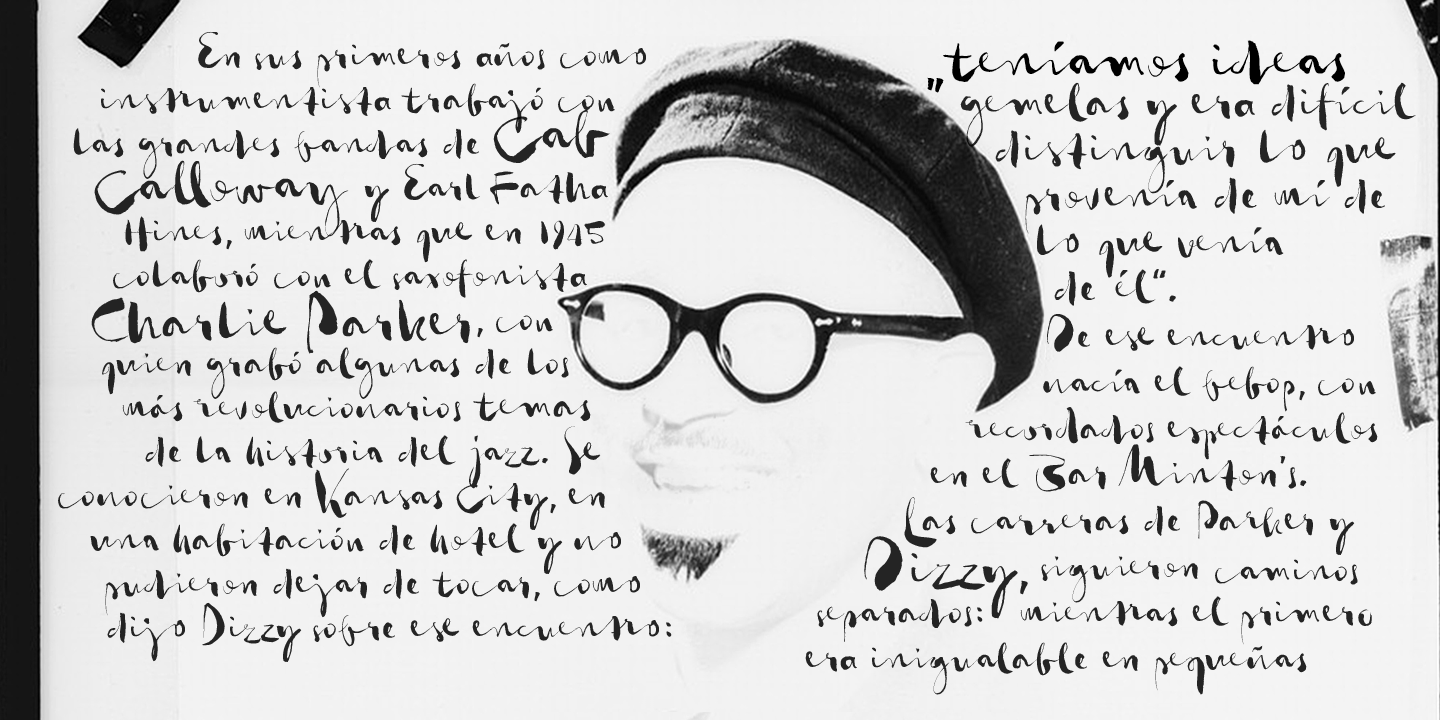 En sus primeros años como
instrumentista trabajó con
las grandes bandas de Cab
Calloway y Earl Fatha
Hines, mientras que en 1945
colaboró con el saxofonista
Charlie Parker, con
quien grabó algunas de los
más revolucionarios temas
de la historia del jazz. Se
conocieron en Kansas City, en
una habitación de hotel y no
pudieron dejar de tocar, como
dijo Dizzy sobre ese encuentro:
„teníamos ideas
gemelas y era difícil
distinguir lo que
provenía de mí de
lo que venía
de él“.
De ese encuentro
nacía el bebop, con
recordados espectáculos
en el Bar Minton's.
Las carreras de Parker y
Dizzy, siguieron caminos
separados: mientras el primero
era inigualable en pequeñas